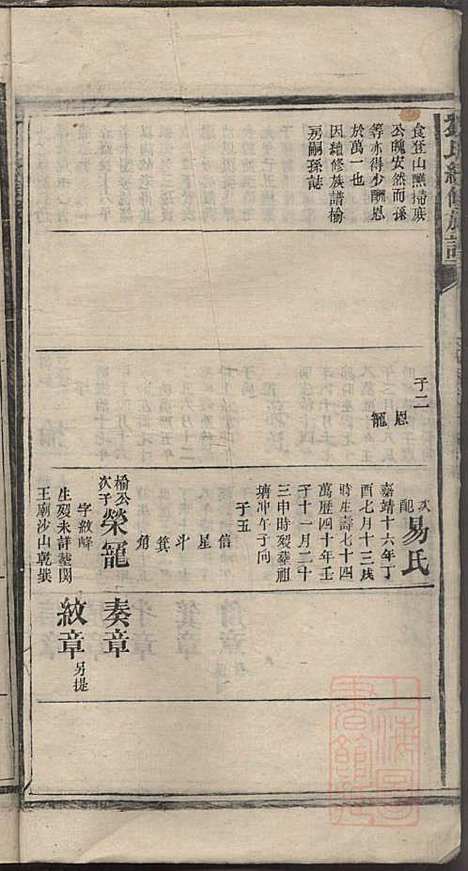 劉氏續修族譜
食登山醮掃族
公魄安然而孫
等亦得少酬恩
於萬一也
因續修族譜榆
房嗣孫誌
子二
恩
寵
次配易氏
嘉靖十六年丁
酉七月十三戌
時生壽七十四
萬歷四十年壬
子十一月二十
三申時歿葬祖
墳冲午子向
子五
信
星
斗
箕
角
榆公次子榮寵
字敘峰
生歿未詳墓関
王廟沙山乾巽
奏章
紋章另提
上海圖書館藏